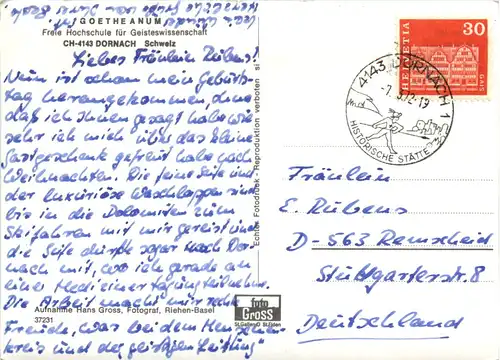 GOETHEANUM
Freie Hochschule für Geisteswissenschaft
CH-4143 DORNACH Schweiz
Liebes Fräulein Rubens!
Nun ist schon mein Geburts-
tag herangekommen, ohne
daß ich Ihnen gesagt habe wie
sehr ich mich über das kleine
Gastgeschenk gefreut habe nach
Weihnachten. Die feine Seife und
der luxuriöse Waschlappen sind
bis in die Dolomiten zum
Skifahren mit mir gereist und
die Seife dürfte sogar nach Dor-
nach mit, wo ich gerade an
einer Medizinertagung teilnehme.
Die Arbeit macht mir sehr
Freude, was bei dem Menschen-
kreis und der geistigen Leitung
Aufnahme Hans Gross, Fotograf, Riehen-Basel
37231
Echtes Fotodruck - Reproduktion verboten
foto
GROSS
St.Gallen
HELVETIA
30
4143 DORNACH 1
-7.3.72-19
HISTORISCHE STÄTTE
Fräulein
E. Rubens
D-563 Remscheid
Stuttgarterstr. 8
Deutschland